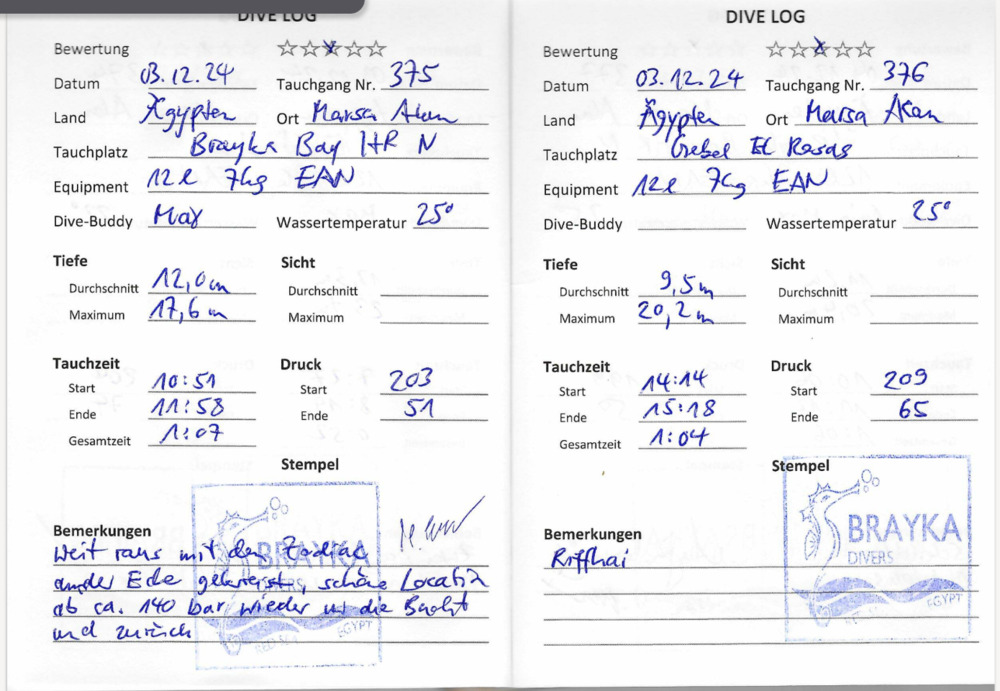 DIVE LOG
Bewertung ☆☆☆☆☆
Datum 03.12.24 Tauchgang Nr. 375
Land Ägypten Ort Marsa Alam
Tauchplatz Brayka Bay HR N
Equipment 12l 7kg EAN
Dive-Buddy May Wassertemperatur 25°
Tiefe Sicht
Durchschnitt 12,0m Durchschnitt
Maximum 17,6m Maximum
Tauchzeit Druck
Start 10:51 Start 203
Ende 11:58 Ende 51
Gesamtzeit 1:07
Stempel
Bemerkungen
Weit raus mit dem Zodiac
an der Ecke gekreist, schöne Location
ab ca. 140 bar wieder in die Bucht
und zurück
BRAYKA
DIVERS
RED SEA EGYPT
DIVE LOG
Bewertung ☆☆☆☆☆
Datum 03.12.24 Tauchgang Nr. 376
Land Ägypten Ort Marsa Alam
Tauchplatz Gebel El Rosas
Equipment 12l 7kg EAN
Dive-Buddy Wassertemperatur 25°
Tiefe Sicht
Durchschnitt 9,5m Durchschnitt
Maximum 20,2m Maximum
Tauchzeit Druck
Start 14:14 Start 209
Ende 15:18 Ende 65
Gesamtzeit 1:04
Stempel
Bemerkungen
Riffhai
BRAYKA
DIVERS
EGYPT